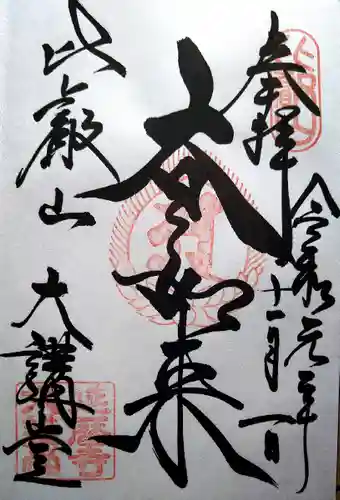 奉拝
令和元年
十一月一日
大日如来
比叡山
大講堂
延暦寺